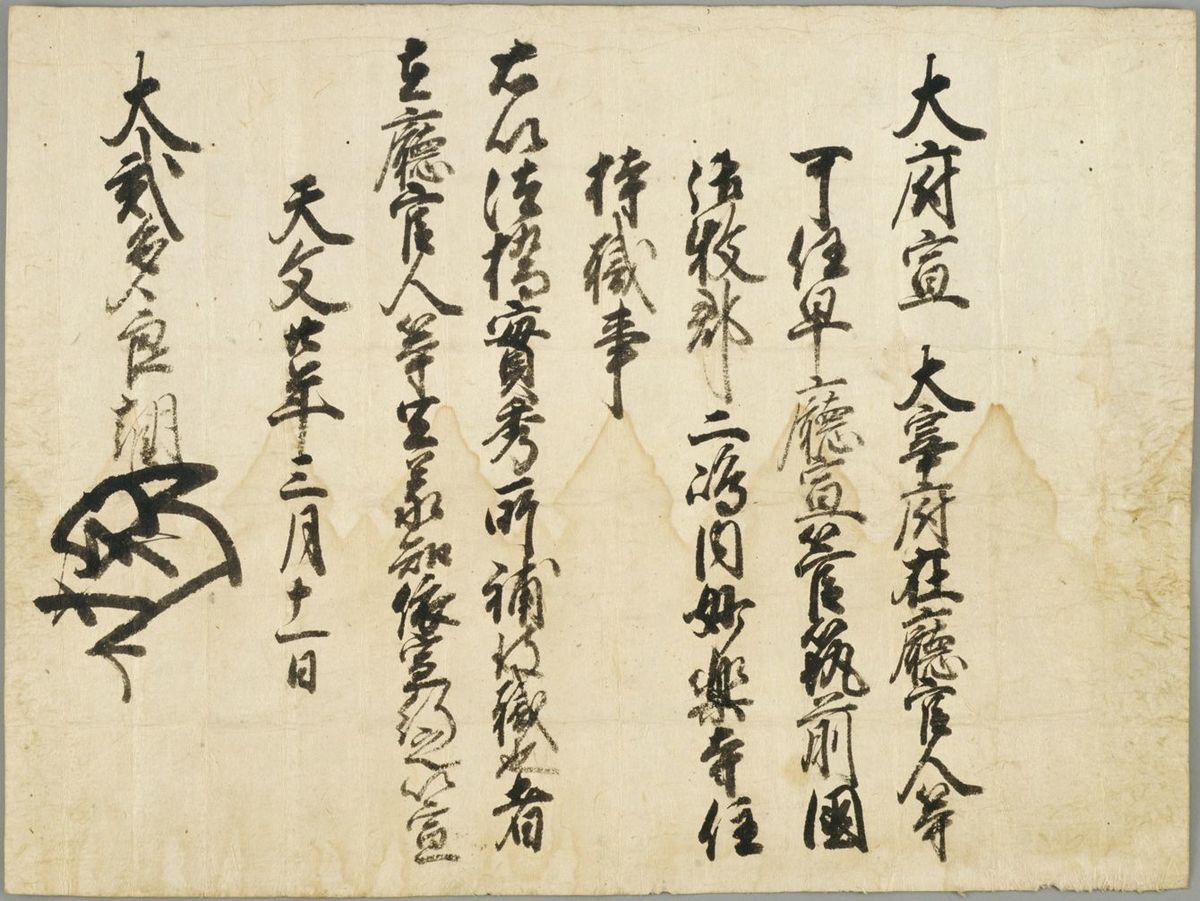 大府宣　大宰府在廳官人等
可任早廳宣管筑前國
御牧郡二嶋内妙樂寺住
持職事
右以法橋實秀所補彼職也者
在廳官人等宜承知依宣行之以宣
天文廿年三月十一日
大貳多々良朝臣